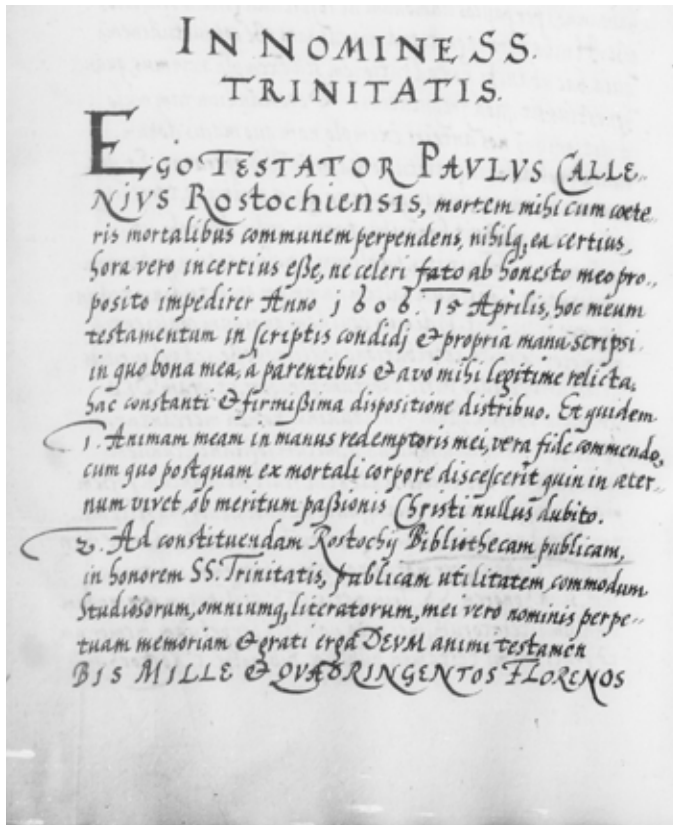 IN NOMINE SS.
TRINITATIS.
EGO TESTATOR PAVLVS CALLE-
NIVS ROSTOCHIENSIS, mortem mihi cum cœte
ris mortalibus communem perpendens, nihilq, ea certius,
hora vero incertius eße, ne celeri fato ab honesto meo pro-
posito impedirer Anno 1606. 15 Aprilis, hoc meum
testamentum in scriptis condidj & propria manu scripsi
in quo bona mea, à parentibus & avo mihi legitime relicta,
hac constanti & firmißima dispositione distribuo. Et quidem
1. Animam meam in manus redemptoris mei, vera fide commendo,
cum quo postquam ex mortali corpore discescerit quin in æter-
num vivet, ob meritum paßionis Christi nullus dubito.
2. Ad constituendam Rostochij Bibliothecam publicam,
in honorem SS. Trinitatis, publicam utilitatem commodum
Studiosorum, omniumq, literatorum, mei vero nominis perpe-
tuam memoriam & grati erga DEVM animi testamen
BIS MILLE & QVADRINGENTOS FLORENOS